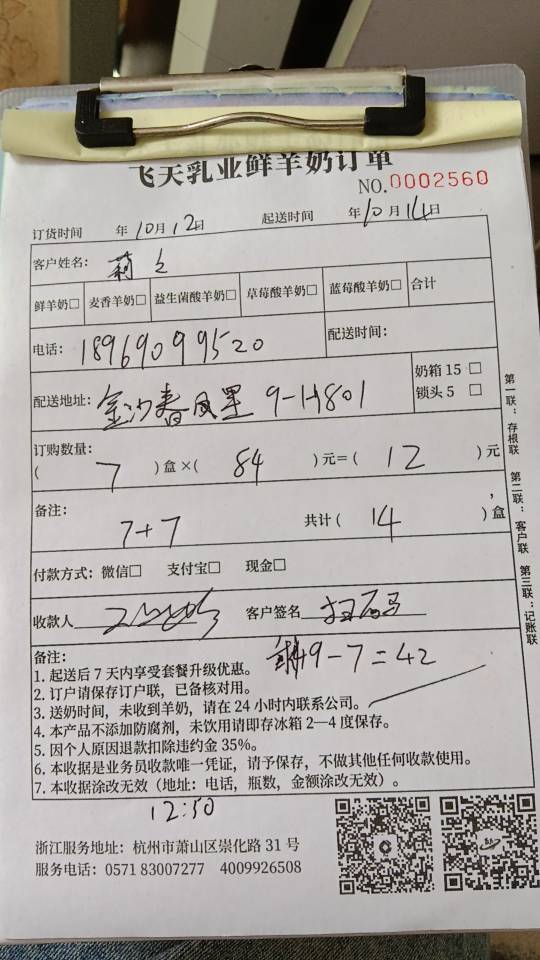 飞天乳业鲜羊奶订单
NO.0002560
订货时间 年10月12日 起送时间 年10月14日
客户姓名:
鲜羊奶□ 麦香羊奶□ 益生菌酸羊奶□ 草莓酸羊奶□ 蓝莓酸羊奶□ 合计
电话: 18969099520 配送时间:
配送地址: 金沙春风里 9-1-1801
奶箱 15 □
锁头 5 □
订购数量:
( 7 )盒×( 84 )元=( 12 )元
备注: 7+7 共计( 14 )盒
付款方式: 微信□ 支付宝□ 现金□
收款人 客户签名 扫码
备注: 49-7=42
1. 起送后 7 天内享受套餐升级优惠。
2. 订户请保存订户联，已备核对用。
3. 送奶时间，未收到羊奶，请在 24 小时内联系公司。
4. 本产品不添加防腐剂，未饮用请即存冰箱 2—4 度保存。
5. 因个人原因退款扣除违约金 35%。
6. 本收据是业务员收款唯一凭证，请予保存，不做其他任何收款使用。
7. 本收据涂改无效（地址: 电话，瓶数，金额涂改无效）。
12:50
浙江服务地址: 杭州市萧山区崇化路 31 号
服务电话: 0571 83007277 4009926508
第一联: 存根联 第二联: 客户联 第三联: 记账联